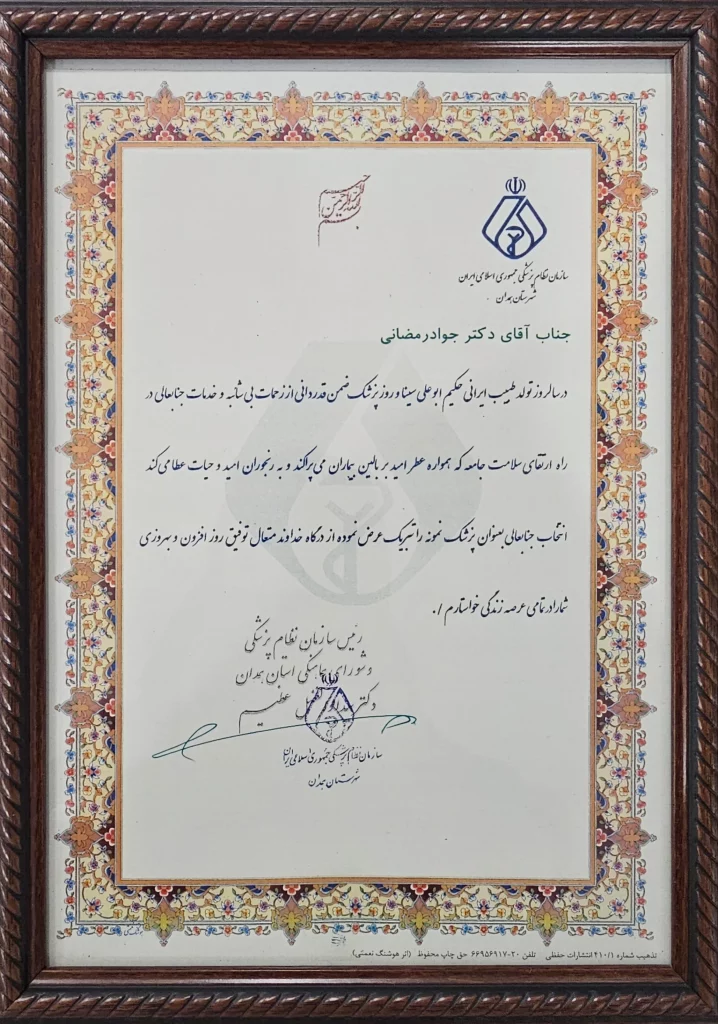 بسم الله الرحمن الرحیم
سازمان نظام پزشکی جمهوری اسلامی ایران
شهرستان همدان
جناب آقای دکتر جوادرمضانی
در سالروز تولد طبیب ایرانی حکیم ابوعلی سینا و روز پزشک ضمن قدردانی از زحمات بی شائبه و خدمات جنابعالی در
راه ارتقای سلامت جامعه که همواره عطر امید بر بالین بیماران می پراکند و به رنجوران امید و حیات عطا می کند
انتخاب جنابعالی بعنوان پزشک نمونه را تبریک عرض نموده از درگاه خداوند متعال توفیق روز افزون و بهروزی
شما را در تمامی عرصه زندگی خواستارم ./
رئیس سازمان نظام پزشکی
و شورای هماهنگی استان همدان
دکتر عظیم
سازمان نظام پزشکی جمهوری اسلامی ایران
شهرستان همدان
تذهیب شماره ۴۱۰/۱ انتشارات حفظی تلفن ۲۰-۶۶۹۵۶۹۱۷ حق چاپ محفوظ (اثر هوشنگ نعمتی)